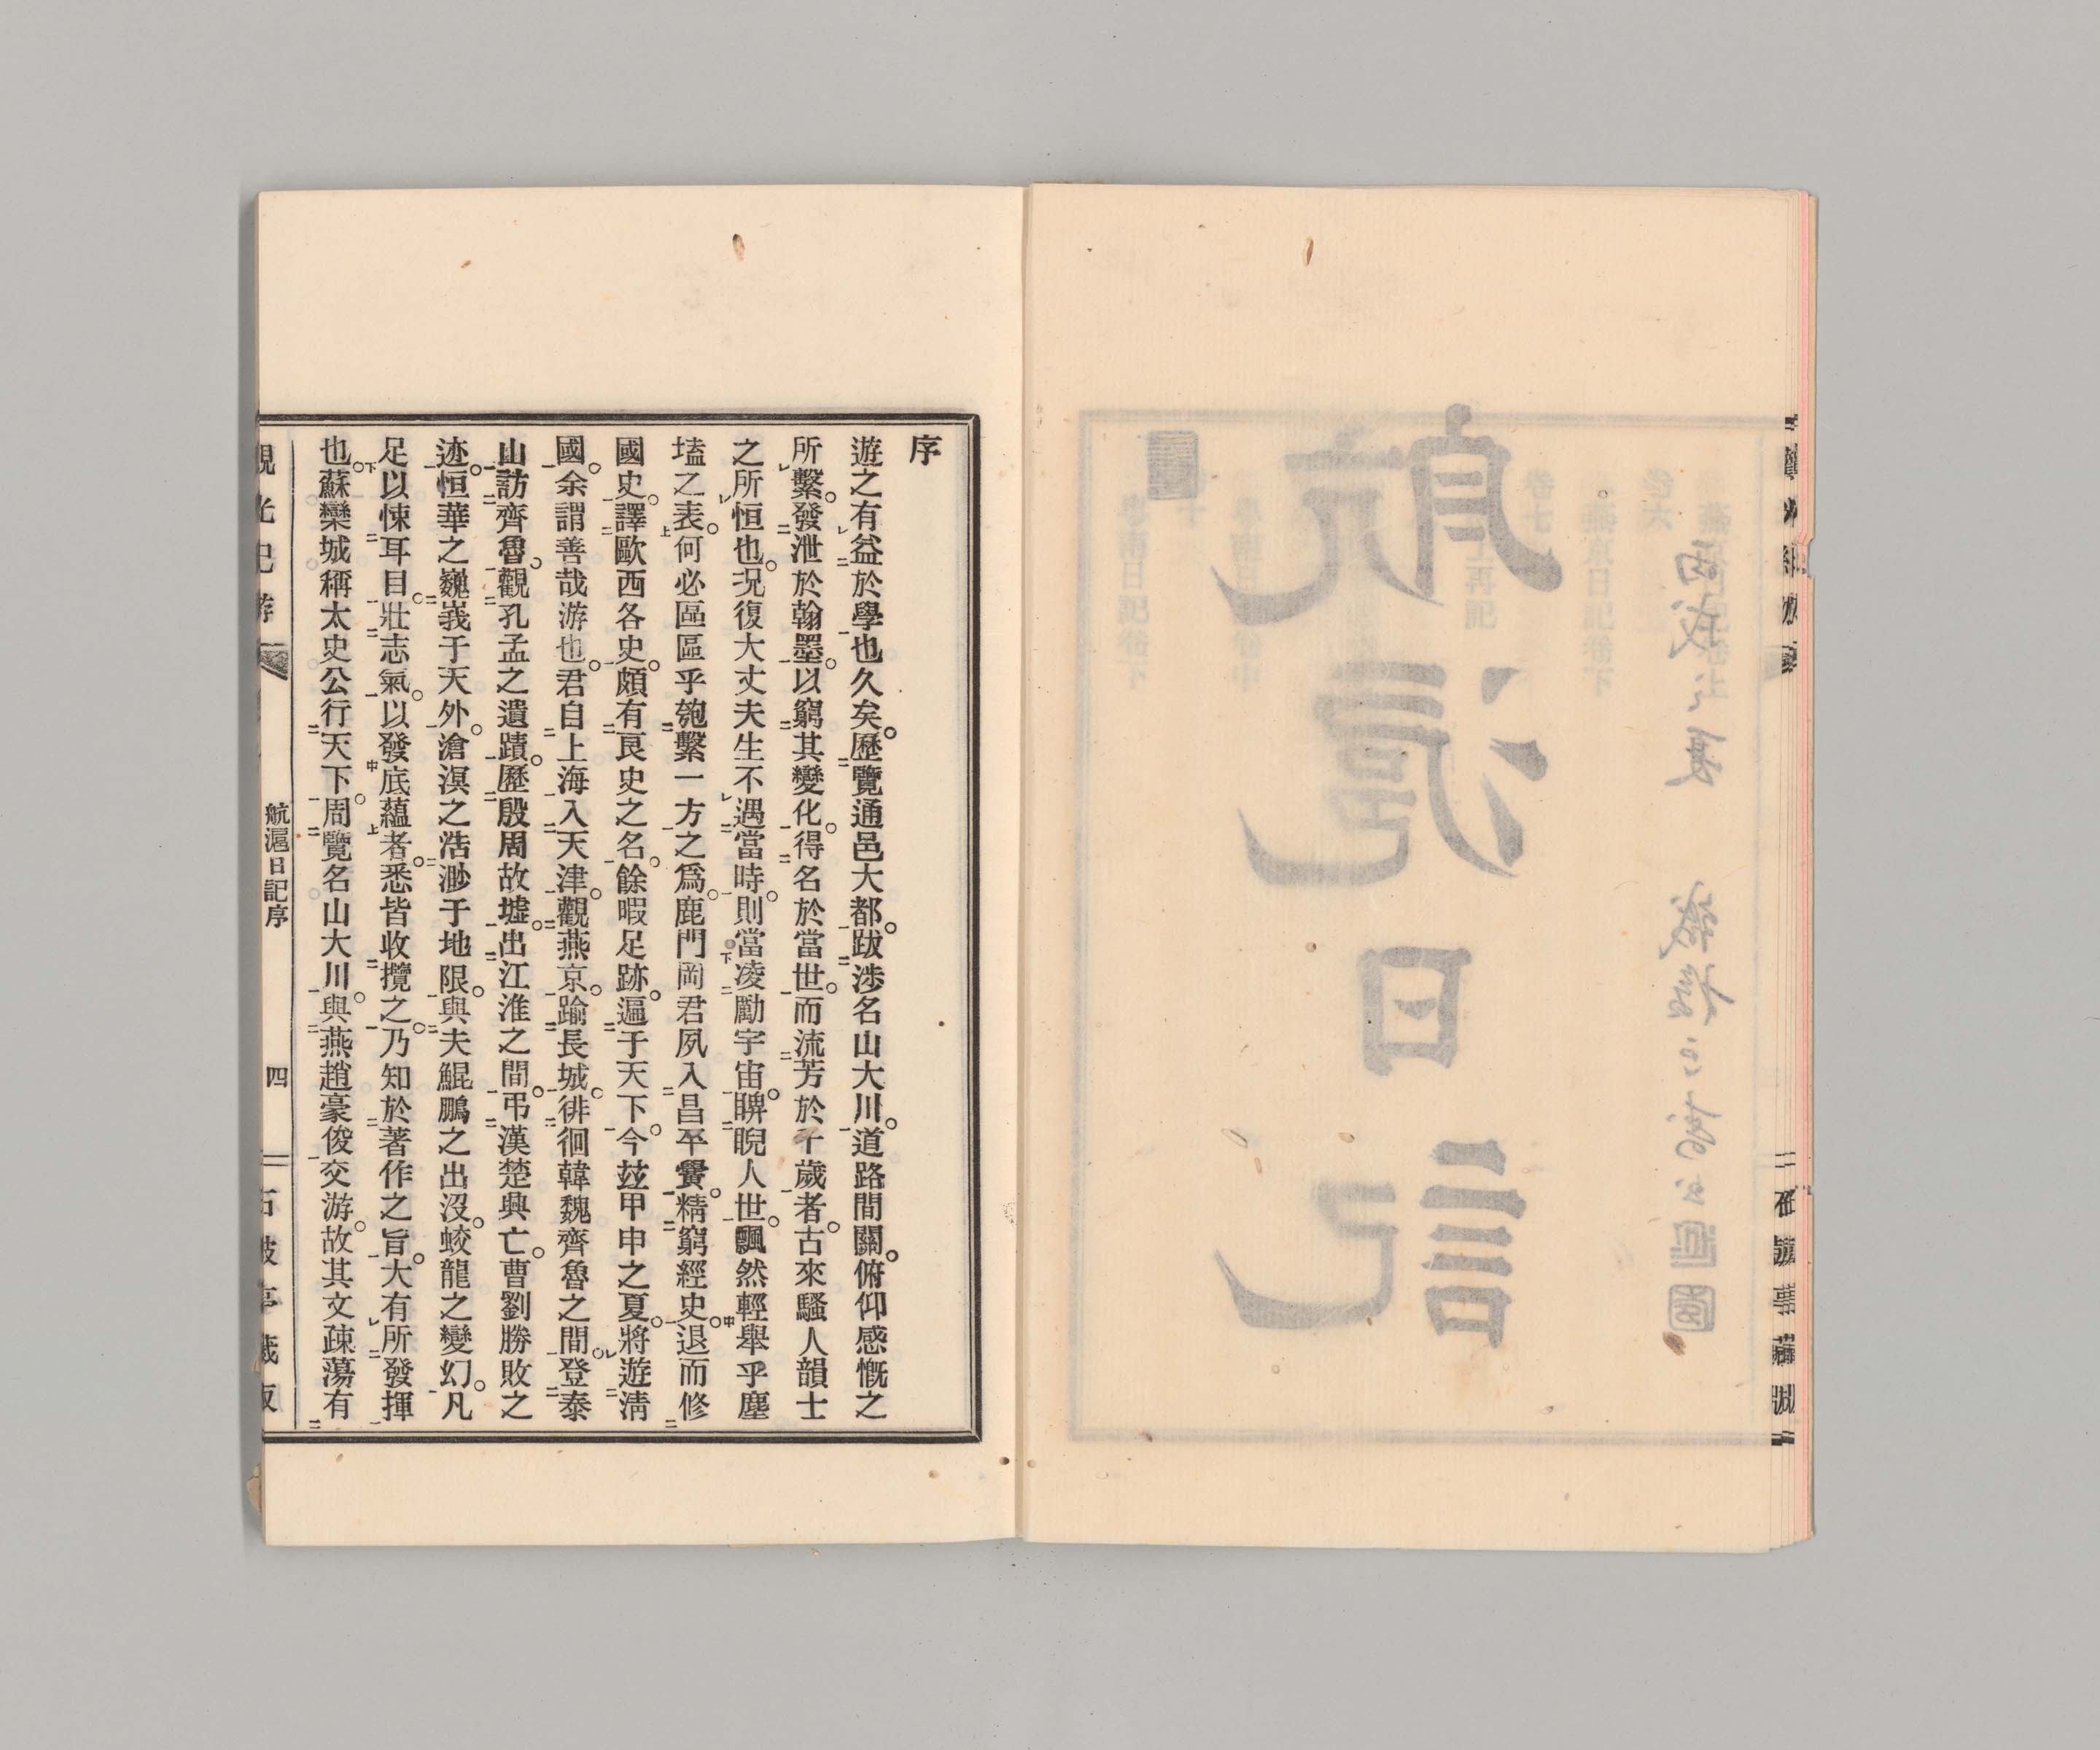 序
遊之有益於學也久矣。歷覽通邑大都。跋涉名山大川。道路間關。俯仰感慨之
所繫。發泄於翰墨。以窮其變化。得名於當世。而流芳於千歲者。古來騷人韻士
之所恒也。况復大丈夫生不遇當時。則當凌勵宇宙。睥睨人世。飄然輕舉乎塵
壒之表。何必區區乎匏繫一方之爲。鹿門岡君夙入昌平黌。精窮經史。退而修
國史。譯歐西各史。頗有良史之名。餘暇足跡。遍于天下。今玆甲申之夏。將遊淸
國。余謂善哉游也。君自上海入天津。觀燕京。踰長城。徘徊韓魏齊魯之間。登泰
山訪齊魯。觀孔孟之遺蹟。歷殷周故墟。出江淮之間。弔漢楚興亡。曹劉勝敗之
迹。恒華之巍峩于天外。滄溟之浩渺于地限。與夫鯤鵬之出沒。蛟龍之變幻。凡
足以悚耳目。壯志氣。以發底蘊者。悉皆收攬之。乃知於著作之旨。大有所發揮
也。蘇欒城稱太史公行天下。周覽名山大川。與燕趙豪俊交游。故其文疎蕩有
觀光紀游
航滬日記序
四
石鼓亭藏板
航滬日記